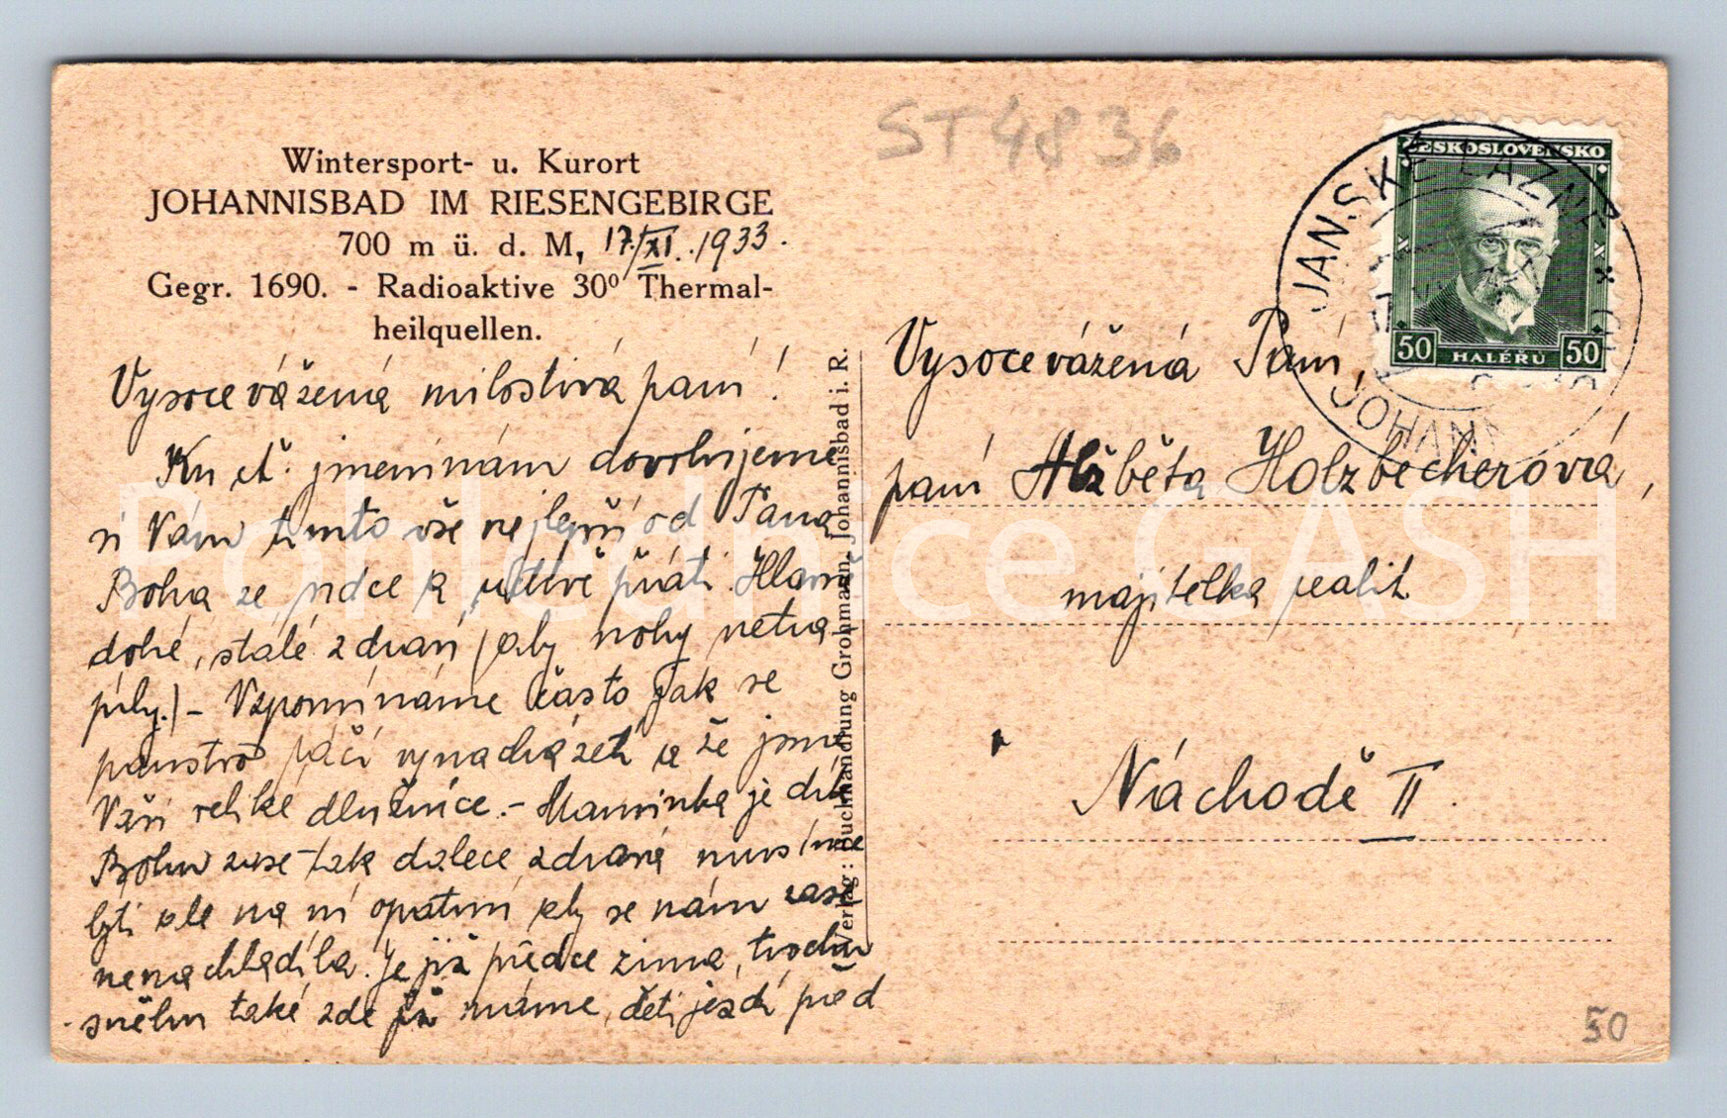 ST4836
Wintersport- u. Kurort
JOHANNISBAD IM RIESENGEBIRGE
700 m ü. d. M, 17./XI. 1933.
Gegr. 1690. - Radioaktive 30⁰ Thermal-
heilquellen.
Vysocevážená milostivá paní!
Ku ct. jmeninám dovolujeme
si Vám tímto vše nejlepší od Pána
Boha ze srdce a uctivě přáti. Hlavně
dobré, stálé zdraví (aby nohy netrá-
pily.) - Vzpomínáme často jak se
panstvo ráčí vynacházeti a že jsme
Vaši veliké dlužnice. - Maminka je díky
Bohu zase tak dalece zdravá musíme
býti ale na ní opatrní aby se nám zase
nenachladila. Je již přece zima, trochu
sněhu také zde již máme, děti jezdí před
Verlag: Buchhandlung Grohmann, Johannisbad i. R.
ČESKOSLOVENSKO
50 HALÉŘŮ 50
JANSKÉ LÁZNĚ
JOHANN
Vysocevážená Paní,
paní Alžběta Holzbecherová,
majitelka realit
Náchodě II.
50
Pohlednice GASH